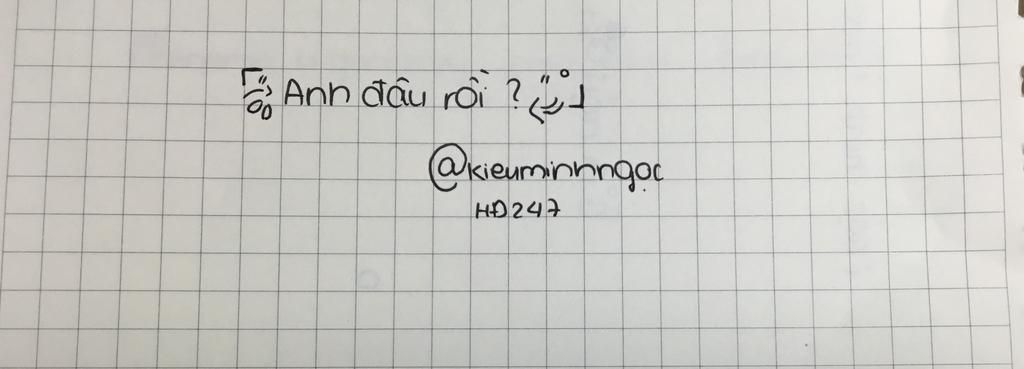 Anh đâu rồi ?
@kieuminhngọc
HĐ247